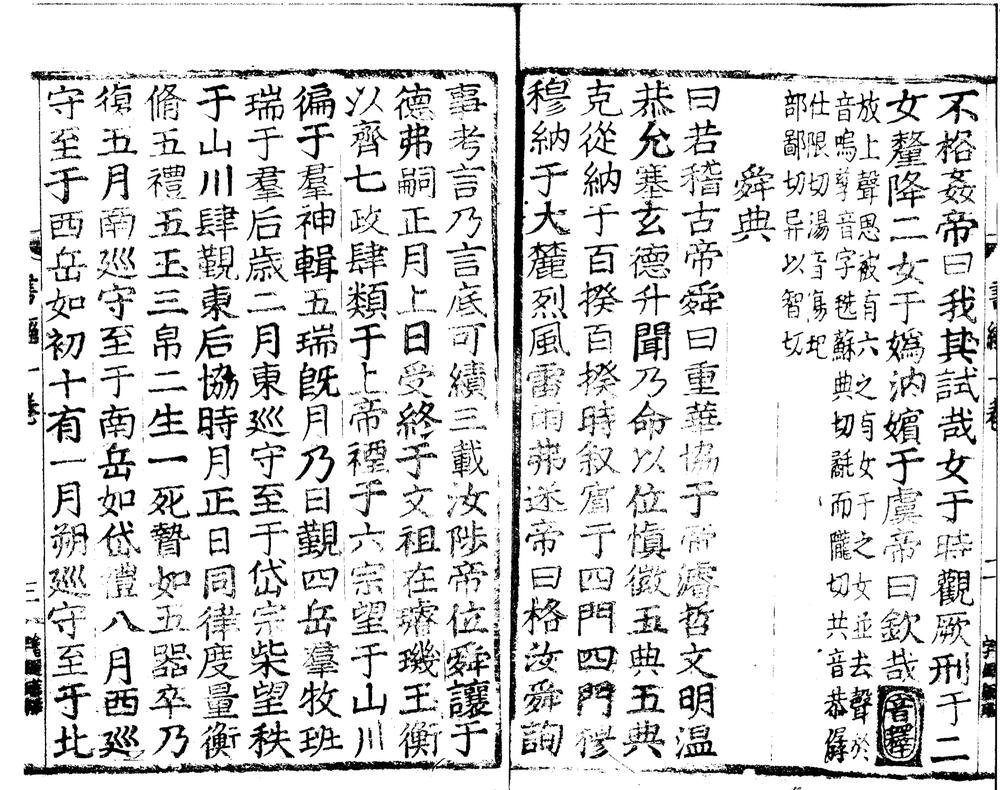 不格姦帝曰我其試哉女于時觀厥刑于二
女釐降二女于嬀汭嬪于虞帝曰欽哉音釋
放上聲思被有六之貞女于之女並去聲於
音嗚孽音字毨蘇典切氄而隴切共音恭僝
仕限切湯音傷圯
部鄙切异以智切
舜典
曰若稽古帝舜曰重華協于帝濬哲文明温
恭允塞玄德升聞乃命以位慎徽五典五典
克從納于百揆百揆時叙賓于四門四門穆
穆納于大麓烈風雷雨弗迷帝曰格汝舜詢
事考言乃言底可績三載汝陟帝位舜讓于
德弗嗣正月上日受終于文祖在璿璣玉衡
以齊七政肆類于上帝禋于六宗望于山川
徧于羣神輯五瑞旣月乃日覲四岳羣牧班
瑞于羣后歲二月東廵守至于岱宗柴望秩
于山川肆覲東后協時月正日同律度量衡
脩五禮五玉三帛二生一死贄如五器卒乃
復五月南廵守至于南岳如岱禮八月西廵
守至于西岳如初十有一月朔廵守至于北
書經一卷
三